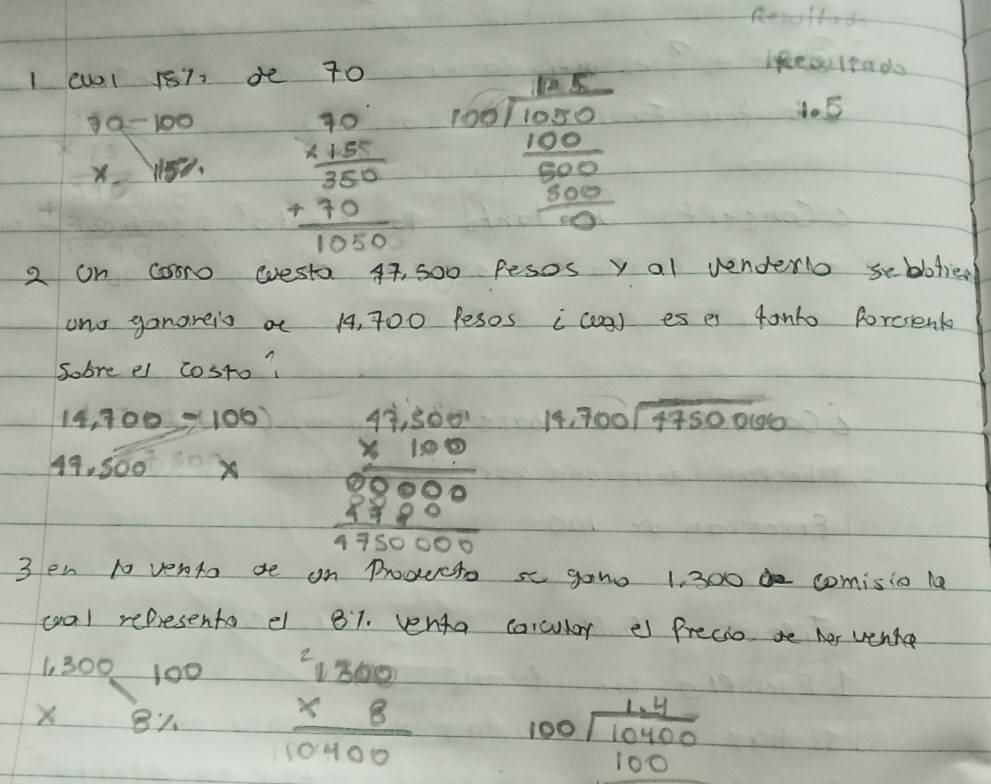 Resultado
1 cual 15% de 70 Resultado
70-100 70 100 1050 1.5
x 15% x 1.55 100
350 500
+ 70 500
1050 0
2 un carro cuesta 47,500 Pesos y al venderlo se obtien
una ganancia de 14,700 Pesos ¿cual es el tanto Porciento
sobre el costo?
14,700 - 100 47,500 14,700 4750000
47,500 x x 100
00000
4750000
3 en la venta de un Producto se gano 1,300 de comisio la
cual representa el 8% venta calcular el Precio de la venta
1,300 100 2 1300 1.4
x 8% x 8 100 10400
10400 100